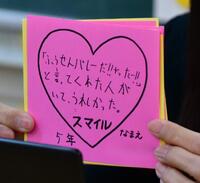 「ふうせんバレーだ!!やったー!!」
と言ってくれた人が
いて、うれしかった。
スマイル
5年
なまえ